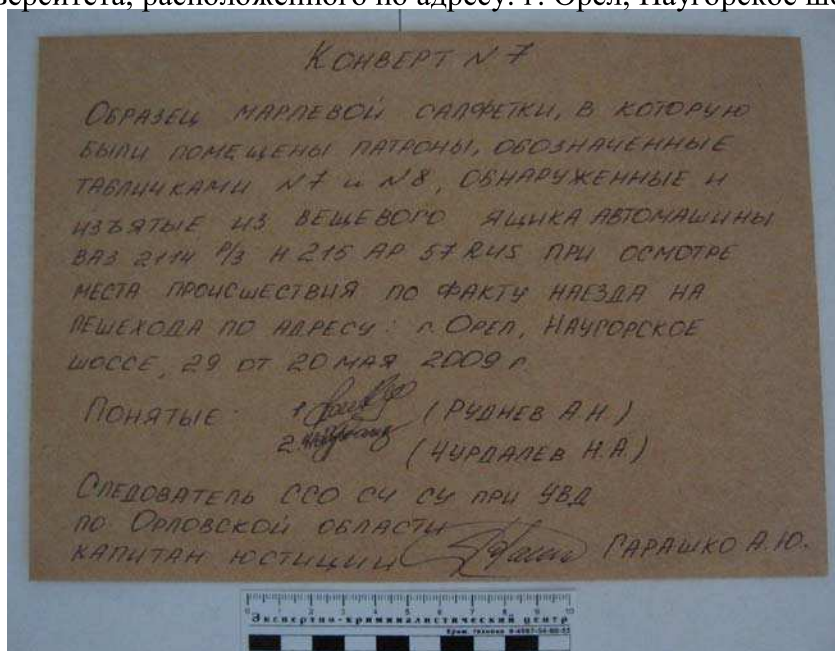 верситета, расположенного по адресу: г. Орел, Наугорское шо
КОНВЕРТ N 7
ОБРАЗЕЦ МАРЛЕВОЙ САЛФЕТКИ, В КОТОРУЮ
БЫЛИ ПОМЕЩЕНЫ ПАТРОНЫ, ОБОЗНАЧЕННЫЕ
ТАБЛИЧКАМИ N7 и N8, ОБНАРУЖЕННЫЕ И
ИЗЪЯТЫЕ ИЗ ВЕЩЕВОГО ЯЩИКА АВТОМАШИНЫ
ВАЗ 2114 Р/З Н 215 АР 57 RUS ПРИ ОСМОТРЕ
МЕСТА ПРОИСШЕСТВИЯ ПО ФАКТУ НАЕЗДА НА
ПЕШЕХОДА ПО АДРЕСУ: г. ОРЕЛ, НАУГОРСКОЕ
ШОССЕ, 29 ОТ 20 МАЯ 2009 г
ПОНЯТЫЕ: 1. (РУДНЕВ А.Н.)
2. (ЧУРДАЛЕВ Н.А.)
СЛЕДОВАТЕЛЬ ССО СЧ СУ ПРИ УВД
ПО ОРЛОВСКОЙ ОБЛАСТИ
КАПИТАН ЮСТИЦИИ ГАРАШКО А.Ю.
0 1 2 3 4 5 6 7 8 9 10
Экспертно-криминалистический центр